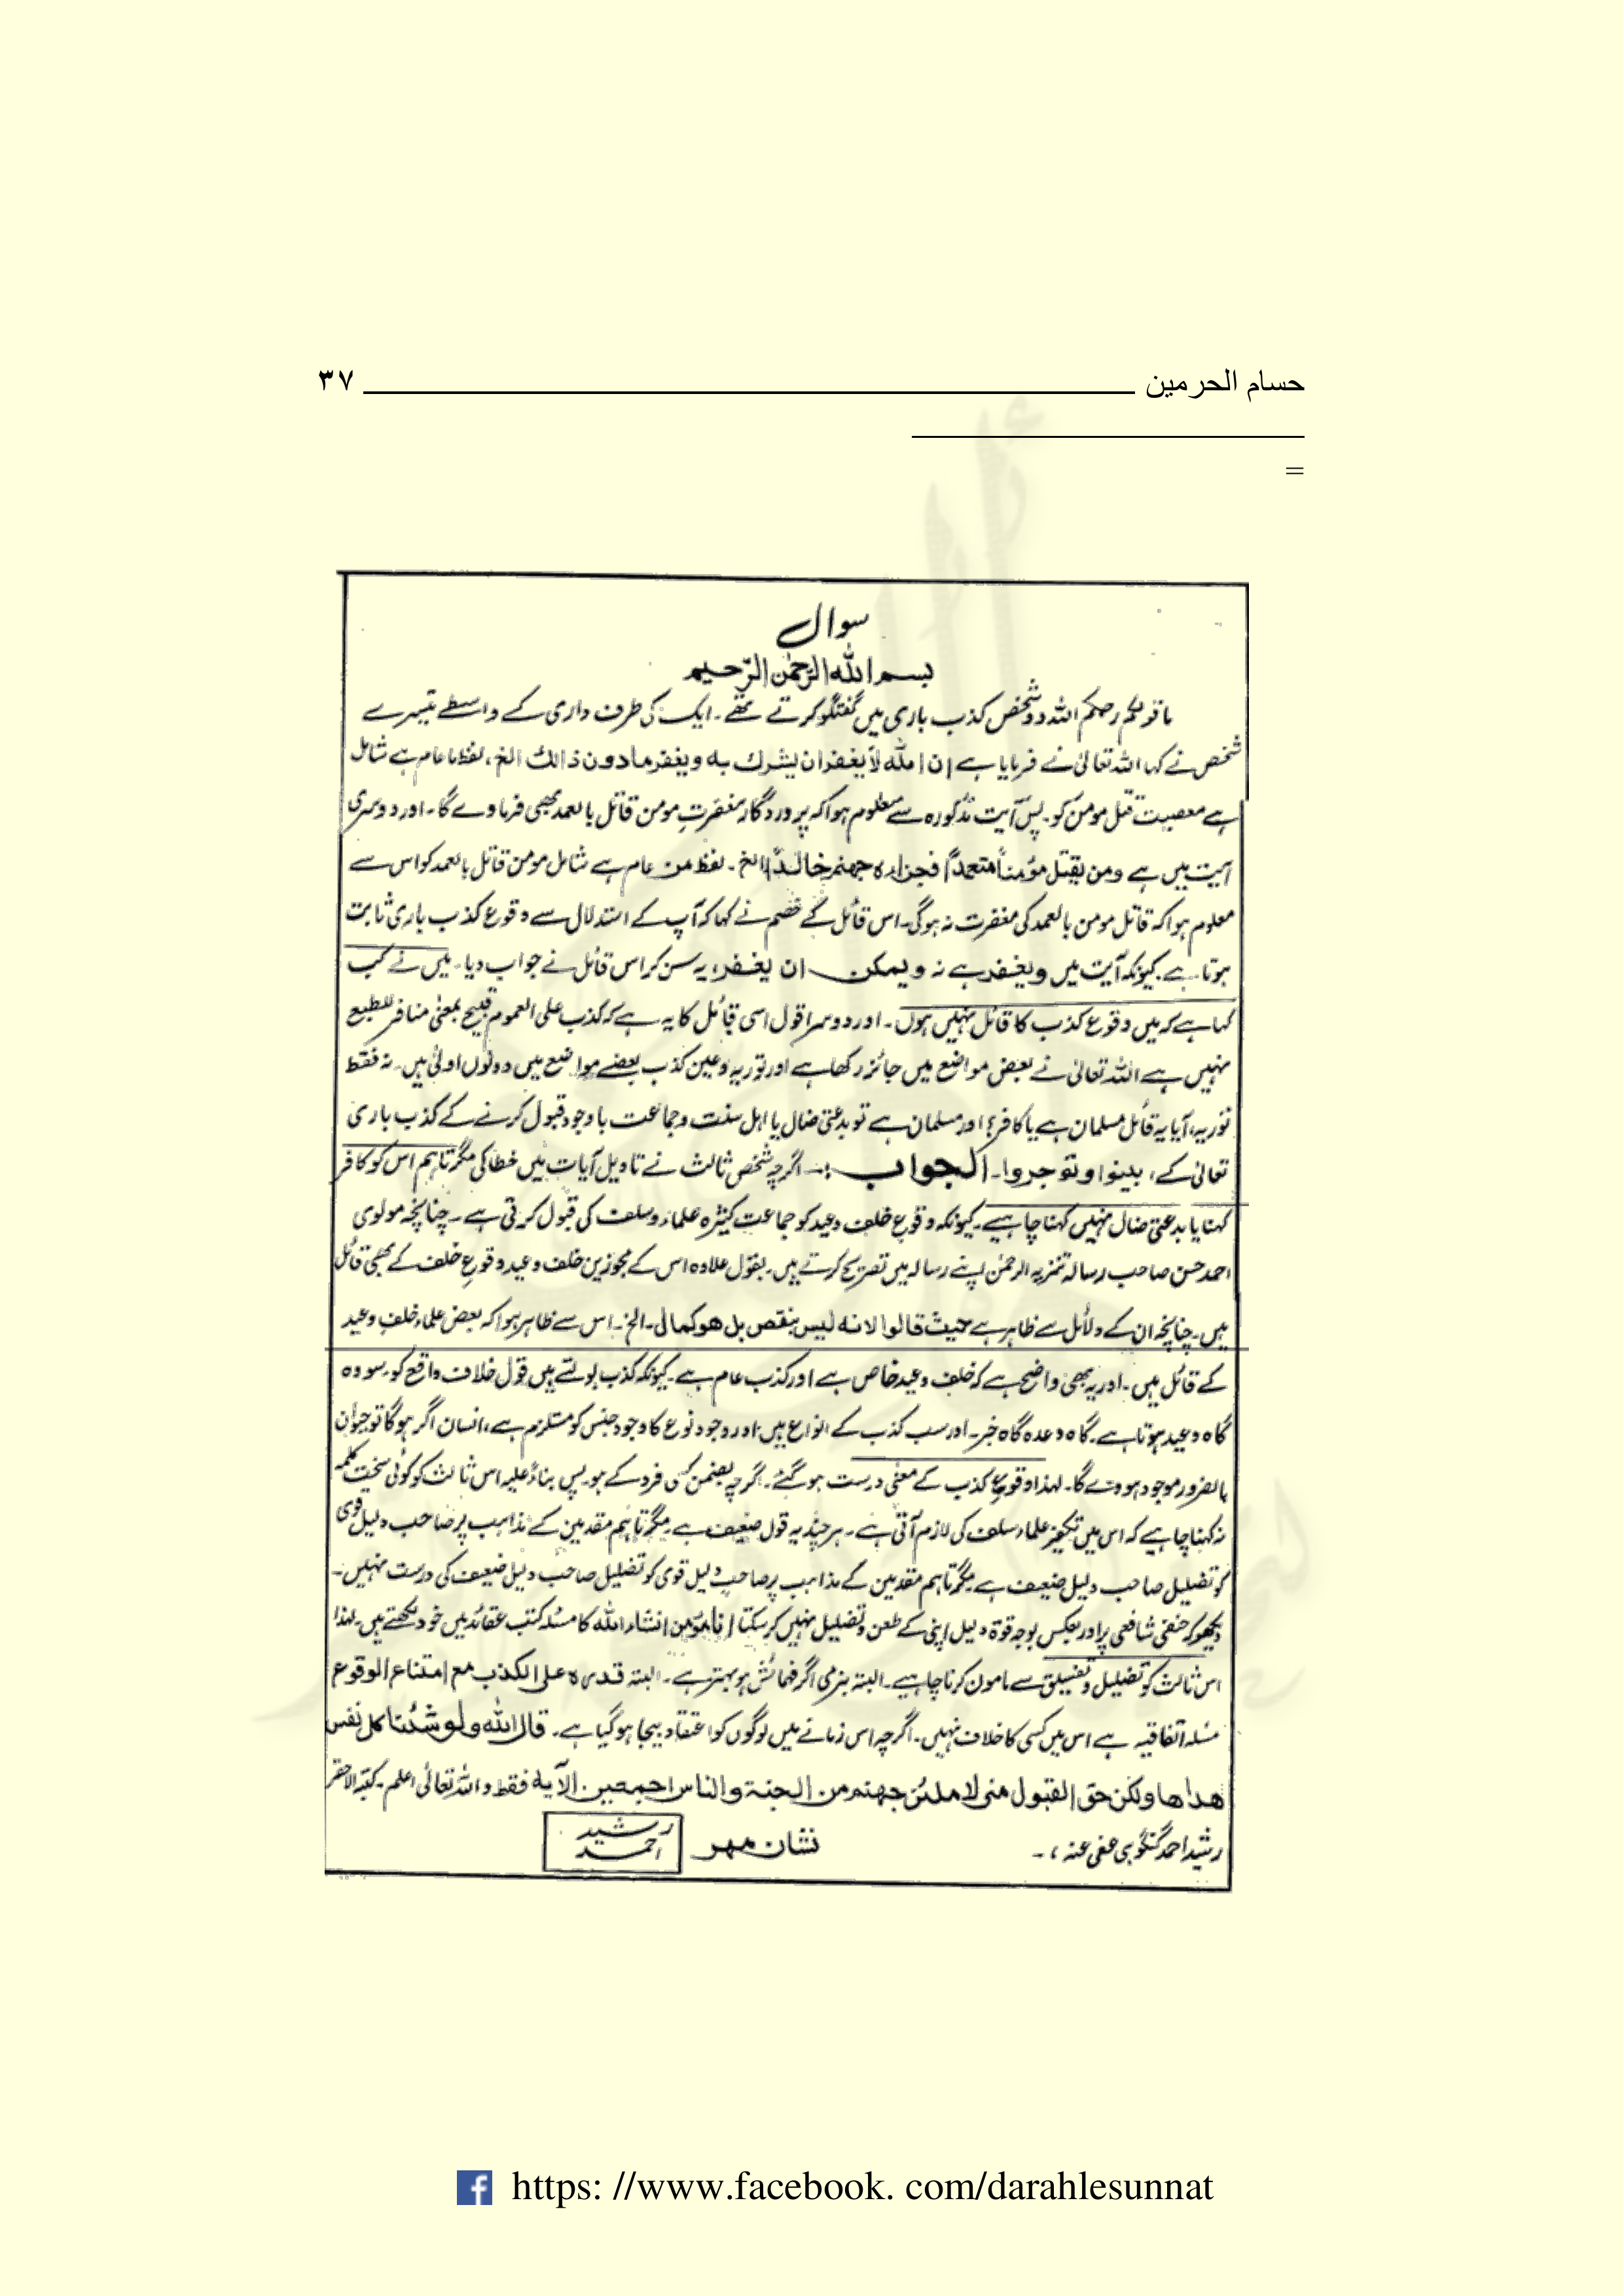 حسام الحرمين ٣٧
=
سوال
بسم الله الرّحمٰن الرّحیم
ما قولکم رحمکم اللہ دو شخص کذب باری میں گفتگو کرتے تھے۔ ایک کی طرف داری کے واسطے تیسرے
شخص نے کہا اللہ تعالیٰ نے فرمایا ہے ان اللہ لا یغفر ان یشرك به ویغفر مادون ذالك الخ، لفظ ما عام ہے شامل
ہے معصیت قتل مومن کو۔ پس آیت مذکورہ سے معلوم ہوا کہ پروردگار مغفرتِ مومن قاتل بالعمد بھی فرماوے گا۔ اور دوسری
آیت میں ہے ومن یقتل مؤمناً متعمداً فجزاءہ جہنم خالداً الخ۔ لفظ من عام ہے شامل مومن قاتل بالعمد کو اس سے
معلوم ہوا کہ قاتل مومن بالعمد کی مغفرت نہ ہوگی۔ اس قائل کے خصم نے کہا کہ آپ کے استدلال سے وقوع کذب باری ثابت
ہوتا ہے۔ کیونکہ آیت میں ویغفر ہے نہ ویمکن ان یغفر، یہ سن کر اس قائل نے جواب دیا۔ میں نے کب
کہا ہے کہ میں وقوع کذب کا قائل نہیں ہوں۔ اور دوسرا قول اسی قائل کا یہ ہے کہ کذب علی العموم قبیح بمعنیٰ منافر للطبع
نہیں ہے اللہ تعالیٰ نے بعض مواضع میں جائز رکھا ہے اور توریہ و عین کذب بعضے مواضع میں دونوں اولیٰ ہیں۔ نہ فقط
توریہ، آیا یہ قائل مسلمان ہے یا کافر؟ اور مسلمان ہے تو بدعتی ضال یا اہل سنت وجماعت باوجود قبول کرنے کے کذب باری
تعالیٰ کے، بینوا وتوجروا۔ الجواب :۔ اگرچہ شخص ثالث نے تاویل آیات میں خطا کی مگر تاہم اس کو کافر
کہنا یا بدعتی ضال نہیں کہنا چاہیے۔ کیونکہ وقوع خلف وعید کو جماعت کثیرہ علماء وسلف کی قبول کرتی ہے۔ چنانچہ مولوی
احمد حسن صاحب رسالہ تنزیہ الرحمٰن اپنے رسالہ میں تصریح کرتے ہیں۔ بقول علاوہ اس کے مجوزین خلف وعید وقوع خلف کے بھی قائل
ہیں۔ چنانچہ ان کے دلائل سے ظاہر ہے حیث قالوا لانه لیس بنقص بل هو کمال۔ الخ۔ اس سے ظاہر ہوا کہ بعض علماء خلف وعید
کے قائل ہیں۔ اور یہ بھی واضح ہے کہ خلف وعید خاص ہے اور کذب عام ہے۔ کیونکہ کذب بولتے ہیں قول خلاف واقع کو۔ سو وہ
گاہ وعید ہوتا ہے۔ گاہ وعدہ گاہ خبر۔ اور سب کذب کے انواع ہیں۔ اور وجود نوع کا وجود جنس کو مستلزم ہے، انسان اگر ہوگا تو حیوان
بالضرور موجود ہووے گا۔ لہذا وقوع کذب کے معنی درست ہوگئے۔ اگرچہ بضمن کسی فرد کے ہو۔ پس بناءً علیہ اس ثالث کو کوئی سخت کلمہ
نہ کہنا چاہیے کہ اس میں تکفیر علماء سلف کی لازم آتی ہے۔ ہر چند یہ قول ضعیف ہے۔ مگر تاہم مقدمین کے مذاہب پر صاحب دلیل قوی
کو تضلیل صاحب دلیل ضعیف ہے مگر تاہم مقدمین کے مذاہب پر صاحب دلیل قوی کو تضلیل صاحب دلیل ضعیف کی درست نہیں۔
دیکھو کہ حنفی شافعی پر اور بعکس بوجہ قوۃ دلیل اپنی کے طعن وتضلیل نہیں کرسکتا انا مؤمن انشاء اللہ کا مسئلہ کتب عقائد میں خود لکھتے ہیں۔ لہذا
اس ثالث کو تضلیل وتفسیق سے مامون کرنا چاہیے۔ البتہ بنرمی اگر فہمائش ہو بہتر ہے۔ البتہ قدرۃ علی الکذب مع امتناع الوقوع
مسئلہ اتفاقیہ ہے اس میں کسی کا خلاف نہیں۔ اگرچہ اس زمانے میں لوگوں کو اعتقاد بیجا ہوگیا ہے۔ قال اللہ ولو شئنا کل نفس
ھداھا ولکن حق القول منی لاملئن جہنم من الجنة والناس اجمعین۔ الآیه فقط واللہ تعالیٰ اعلم۔ کتبہ الاحقر
رشید احمد گنگوہی عفی عنہ، ۔ نشان مهر رشید احمد
https: //www.facebook. com/darahlesunnat